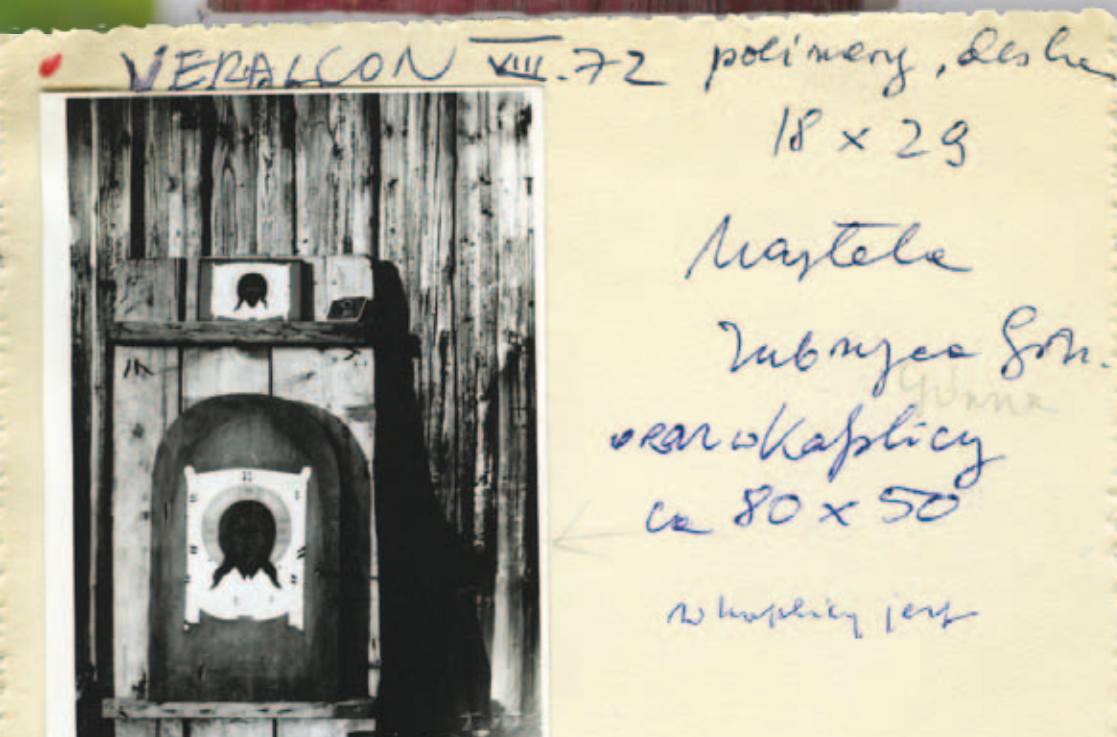 VERAICON VIII.72 polimery, deska
18 x 29
Wajtela
Zubrzyca Gór.
Górna
oraz w Kaplicy
ca 80 x 50
w kaplicy jest